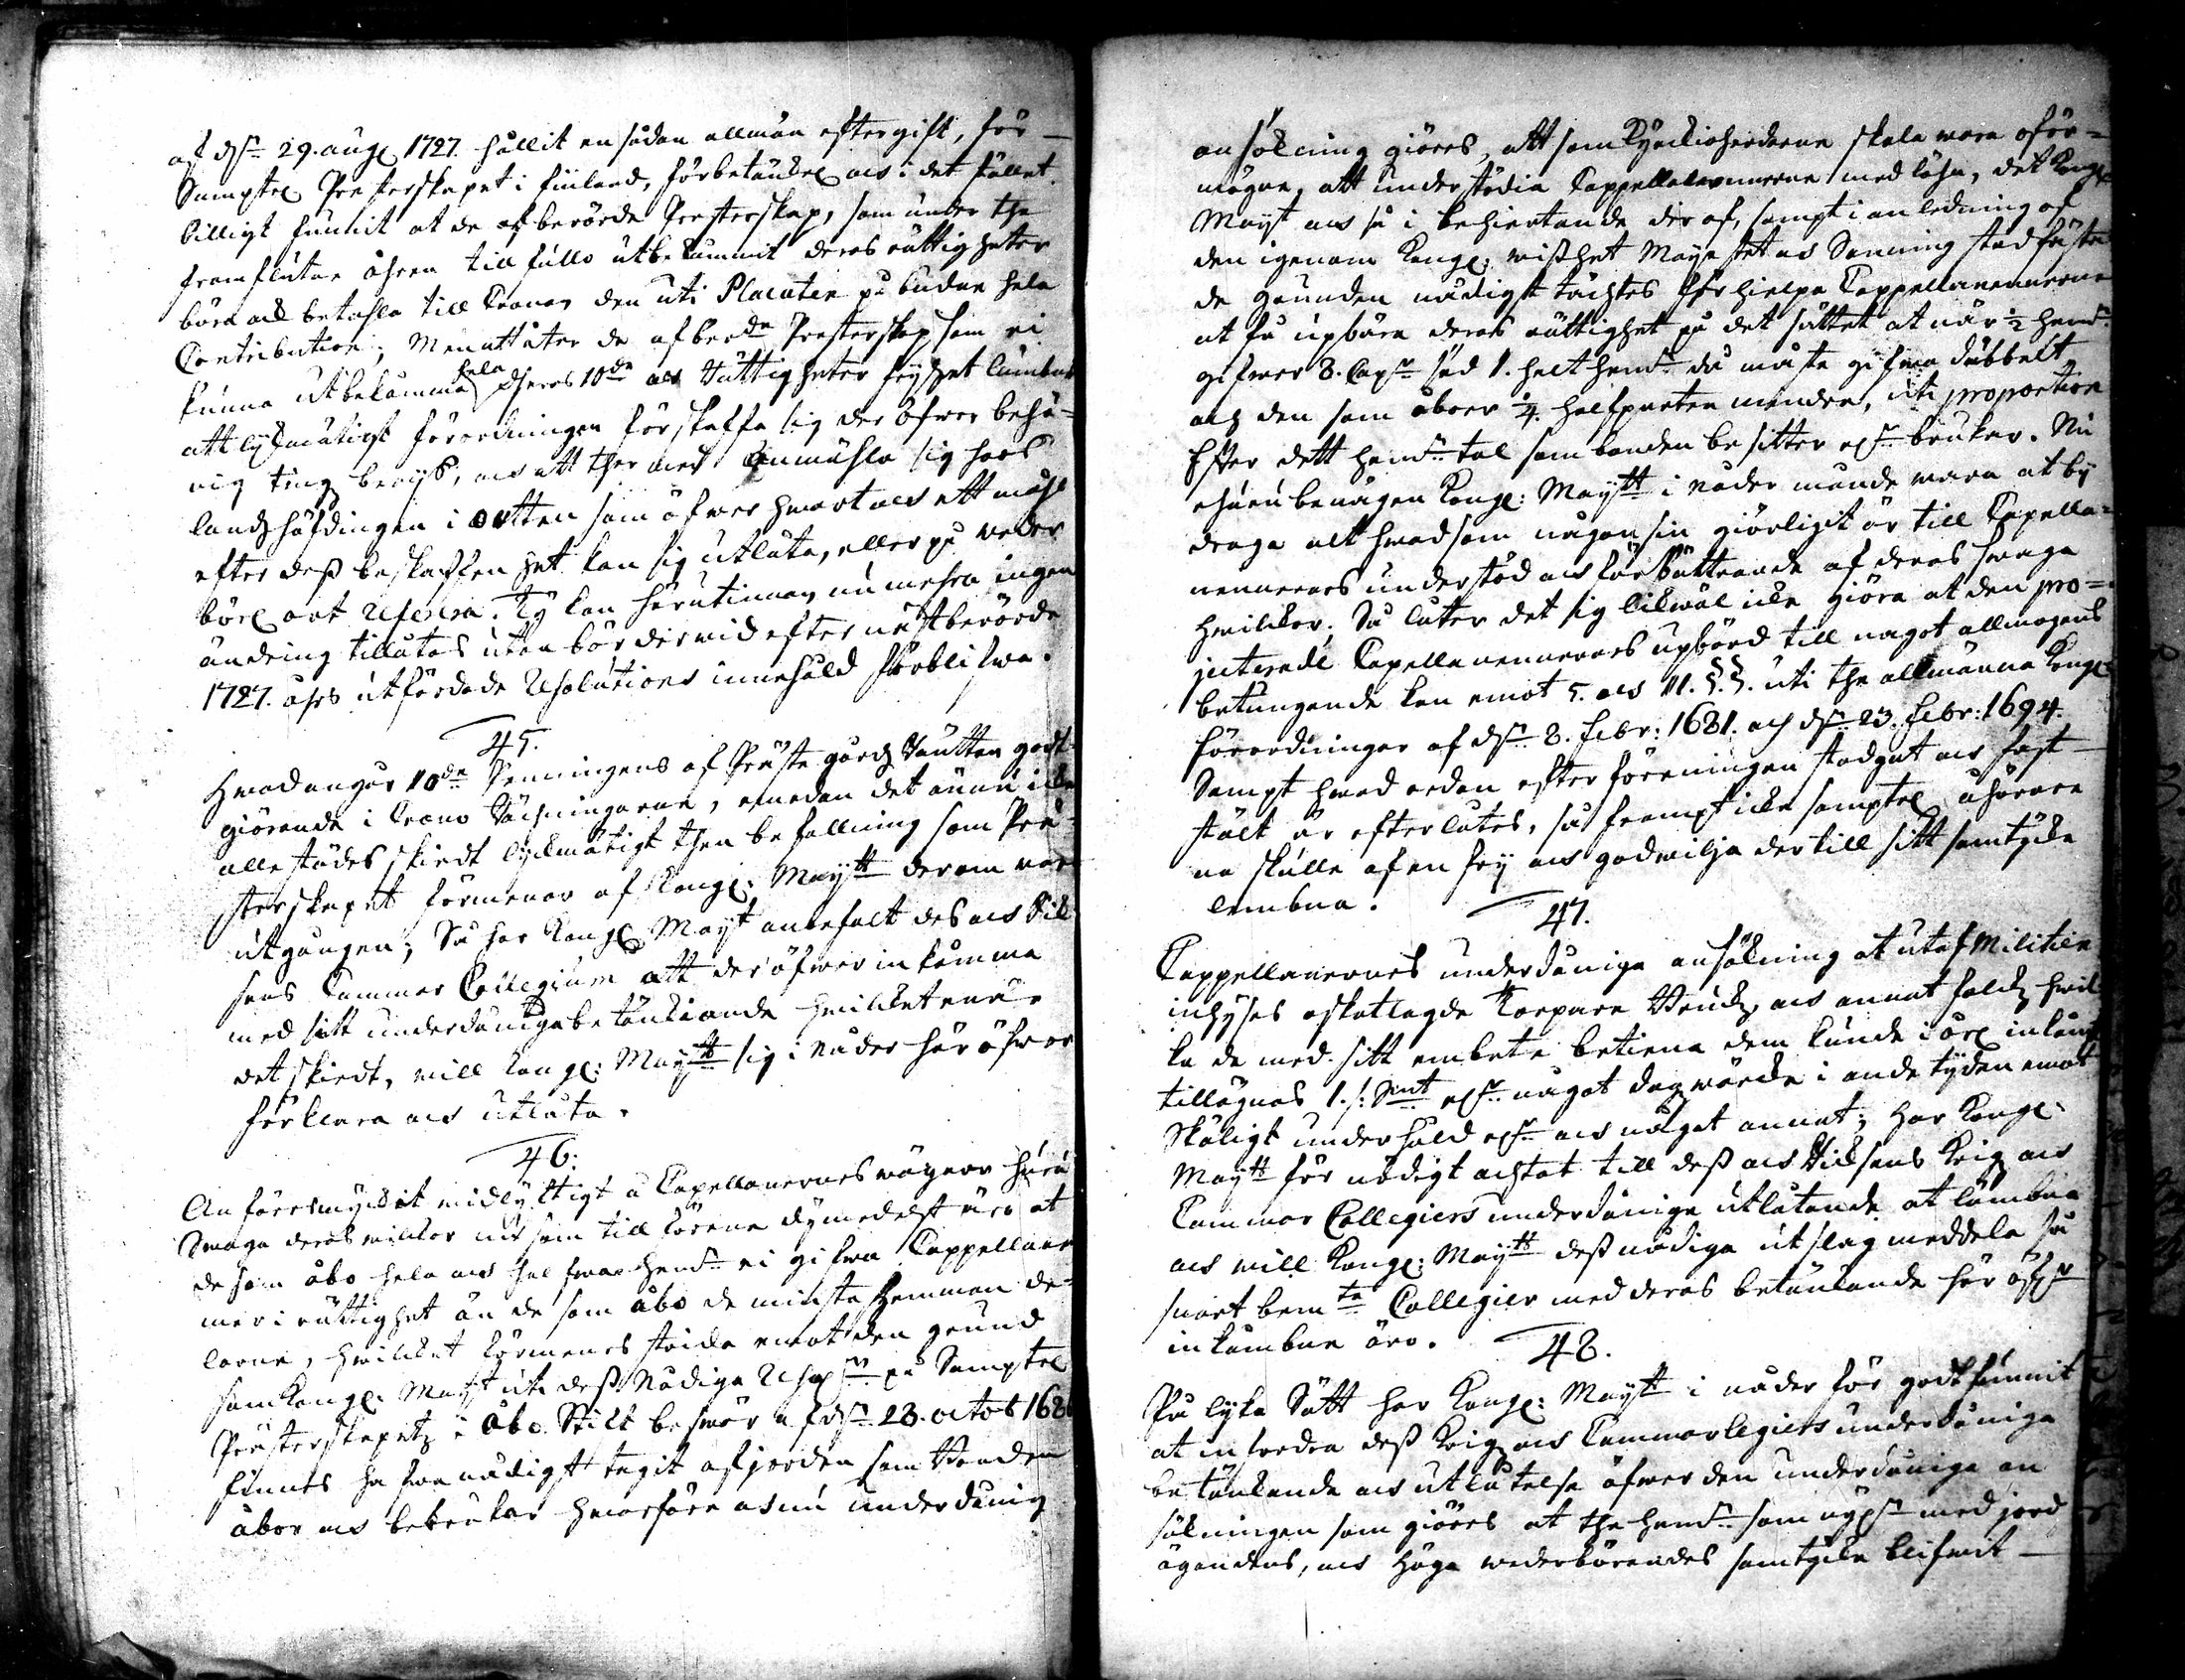 af d:n 29. aug: 1727. hållit en sådan allmän eftergift, för
Sampte: Presterskapet i finland, förbetänkel: ock i det fallet
billigt funnit at de af berörde Presterskap, som under the
framflutne åhren till fullo utbekommit deras rättigheter
böra ock betahla till Cronan den uti Placaten på budne hela
Contribution; Men att åter de af ber:de Presterskap som ei
kunna utbekomma hela theras 10de ock Rättigheter frihet lämbnas
att lijkmätigt förordningen förskaffa sig der öfver behö-
rig tings bewijs, ock att ther med anmähla sig hoos
landshöfdingen i orten som öfwer hwart ock ett måhl
efter dess beskaffenhet kan sig utlåta, eller på weder
börl: ort referera. Ty kan härutinnan nu mehra ingen
ändring tillåtas utan bör derwid efter näst berörde
1727. åhrs utfärdade Resolutions innehåld förblifwa.
45.
Hwad angår 10de Penningens af Prästegårds Räntan godt-
giörande i Crono Räckningarna, emedan det ännu icke
allestädes skiedt lijkmätigt then befallning som Pre-
sterskapet förmenar af Kongl: Maytt derom vara
utgången; Så har Kongl: Mayt anbefalt des ock Rik-
sens Cammar Collegium att der öfwer inkomma
med sitt underdåniga betänkiande hwilcket när
det skiedt, will Kongl: Maytt sig i Nåder här öfwer
förklara ock utlåta.
46:
Anföres mycket widlyftigt å Capellanernes wägnar huru
Swaga deras wilkor ock som till sörene dymedelst äro at
de som åbo hela ock halfwa hem:n ei gifwa Cappellaner
mer i rättighet än de som åbo de minsta hemman de-
larne, hwilcket förmenes strida emot den grund
som Kongl: Mayt uti dess Nådiga Resol:n på Sampte:
Presterskapetz i Åbo Stift beswär af d:n 28. octob 1686
finnes hafwa nådigst tagit af jorden som Bonden
åbor ock bebrukar hwarföre ock nu underdånig
ansökning giöres, att som Kyrckioherdarne skola wara oför-
mögne, att understödia Cappellanernerne med löhn, det Kongl:
Mayt ock så i behiertande deraf, sampt i anledning af
den igenom Kongl: wisshet Mayestet ock Sanning stadfäste
de grunden nådigst täcktes förhielpa Cappellanernerne
at få upbära deras rättighet på det sättet at när 1/2 hem:n
gifwer 8. Cap:r säd 1. helt hem:n då måste gifwa dubbelt
och den som åboer 1/4. halfparten mindre, uti proportion
efter dett hem:n tal som bonden besitter el:r brukar. Nu
ehuru benägen Kongl: Maytt i Nåder månde wara at by
draga alt hwad som någonsin giörligit är till Capella-
nernernes understöd ock förbättrande af deras swaga
wilckor; Så låter det sig likwäl icke giöra at den pro-
jecterade Capellanernernes upbörd till något allmogens
betungande kan emot 5. ock 11. §.§. uti the allmänna Kongl:
förordningar af d:n 8. Febr: 1681. och d:n 23. Febr: 1694.
Sampt hwad sedan efter föreningen stadgat ock fast-
stält är efterlåtes, så frampt icke sampte: åhörare
ne skulle af en fry ock godwilja der till sitt samtycke
lembna.
47.
Cappellanernes underdåniga ansökning at utaf Militien
inhyses oskatlagde Torpare Bruks, ock annat folck hwil-
ka de med sitt embete betiena dem kunde i örl: inkomst
tillägnas 1.: Smt el:r något dagzwärcke i andetyden emot
Skäligt underhåld el:r ock något annat; Har Kongl:
Maytt för nödigt achtat till dess ock Riksens Krigs ock
Cammar Collegiers underdåniga utlåtande at lämbna
ock will Kongl: Maytt dess nådiga utslag meddela så
snart bem:te Collegier med deras betänkande här öf:r
inkombne äro.
48.
På lyka Sätt har Kongl: Maytt i nåder för godt funnit
at infordra dess Krigs ock Cammarlegiers underdåniga
betänkande ock utlåtelse öfwer den underdåniga an
sökningen som giöres at the hem:n som med jord
ägandens, ock höga wederbörandes samtycke blifwit